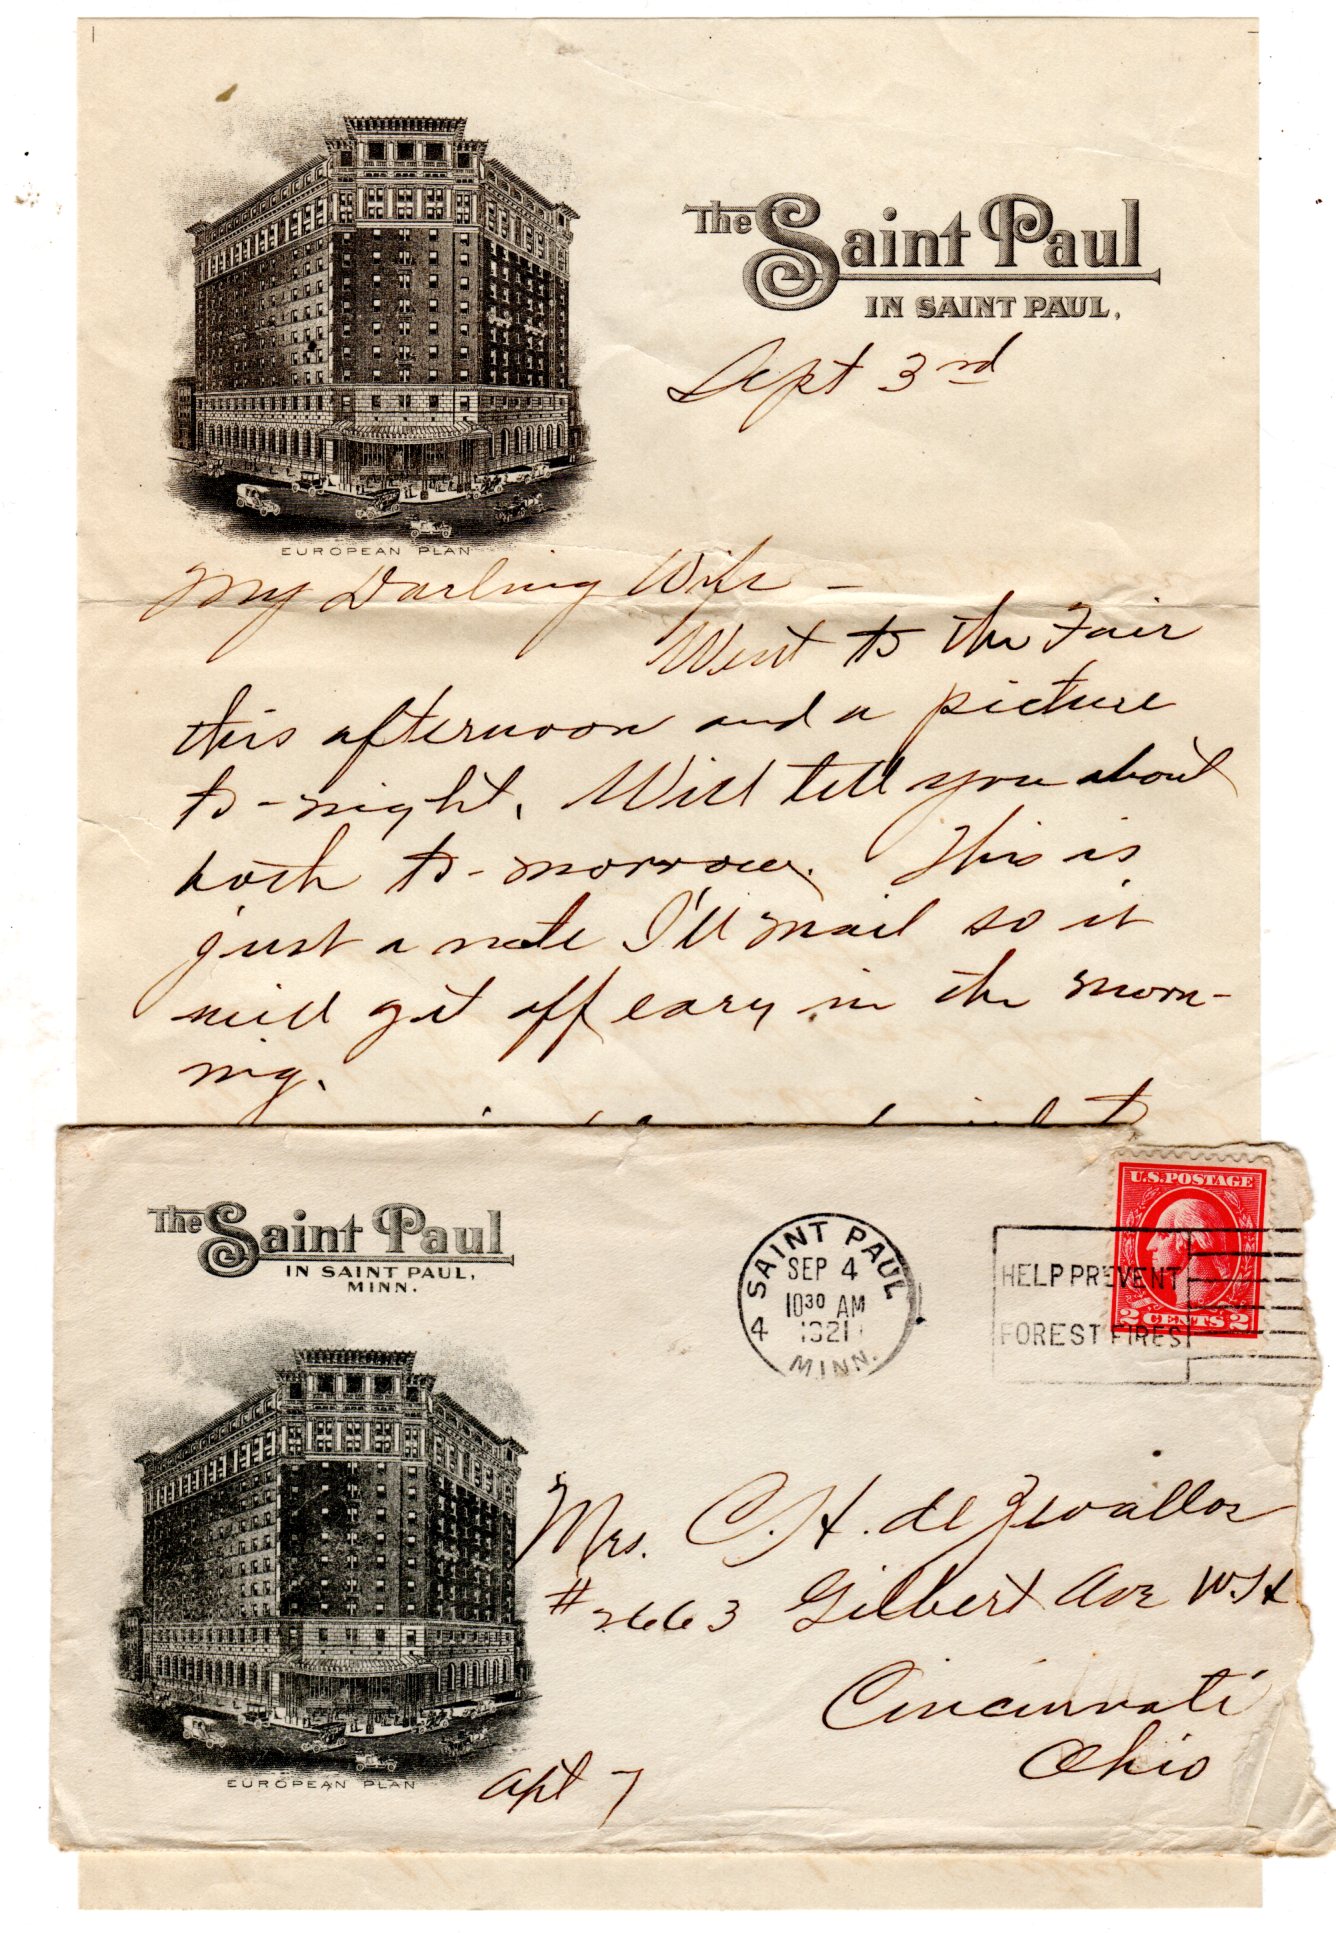 The Saint Paul
IN SAINT PAUL,
Sept 3rd
EUROPEAN PLAN
My Darling Wife -
Went to the Fair
this afternoon and a picture
to-night. Will tell you about
both to-morrow. This is
just a note I'll mail so it
will get off eary in the morn-
ing.
The Saint Paul
IN SAINT PAUL,
MINN.
SAINT PAUL
SEP 4
10 30 AM
4 1921
MINN.
U.S. POSTAGE
2 CENTS 2
HELP PREVENT
FOREST FIRES
Mrs. C. H. de Zevallos
# 2663 Gilbert Ave W.H
Cincinnati
Ohio
EUROPEAN PLAN
Apt 7